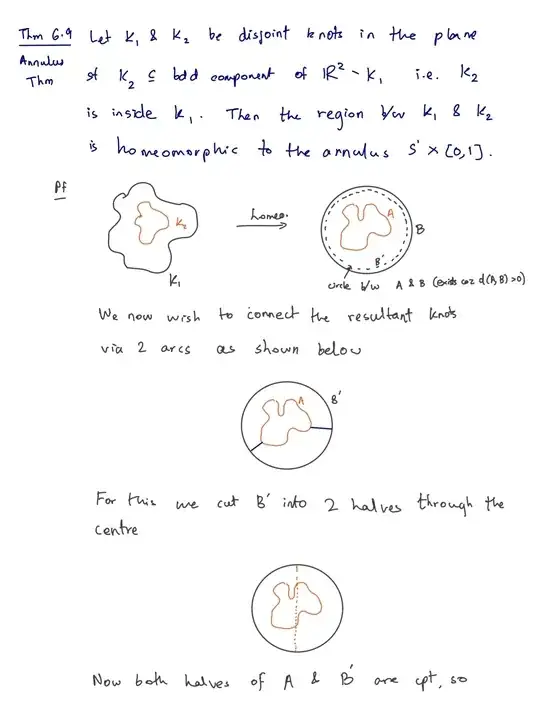 Thm 6.9 Let K₁ & K₂ be disjoint knots in the plane
Annulus Thm
st K₂ ⊆ bdd component of ℝ² - K₁ i.e. K₂
is inside K₁. Then the region b/w K₁ & K₂
is homeomorphic to the annulus S' × [0,1].
Pf
K₂
K₁
homeo.
A
B
B'
circle b/w A & B (exists coz d(A,B)>0)
We now wish to connect the resultant knots
via 2 arcs as shown below
A
B'
For this we cut B' into 2 halves through the
centre
Now both halves of A & B' are cpt, so